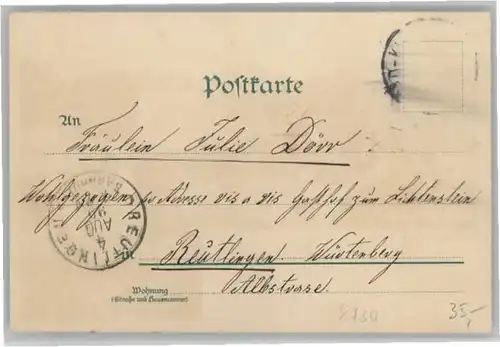 Postkarte
An
Fräulein Julie Dörr
Wohlgezogen pr Adresse vis a vis Gasthof zum Lichtenstein
in Reutlingen. Würtenberg
Albstrase.
Wohnung
(Straße und Hausnummer)
REUTLINGEN
4
AUG
8730
35,-